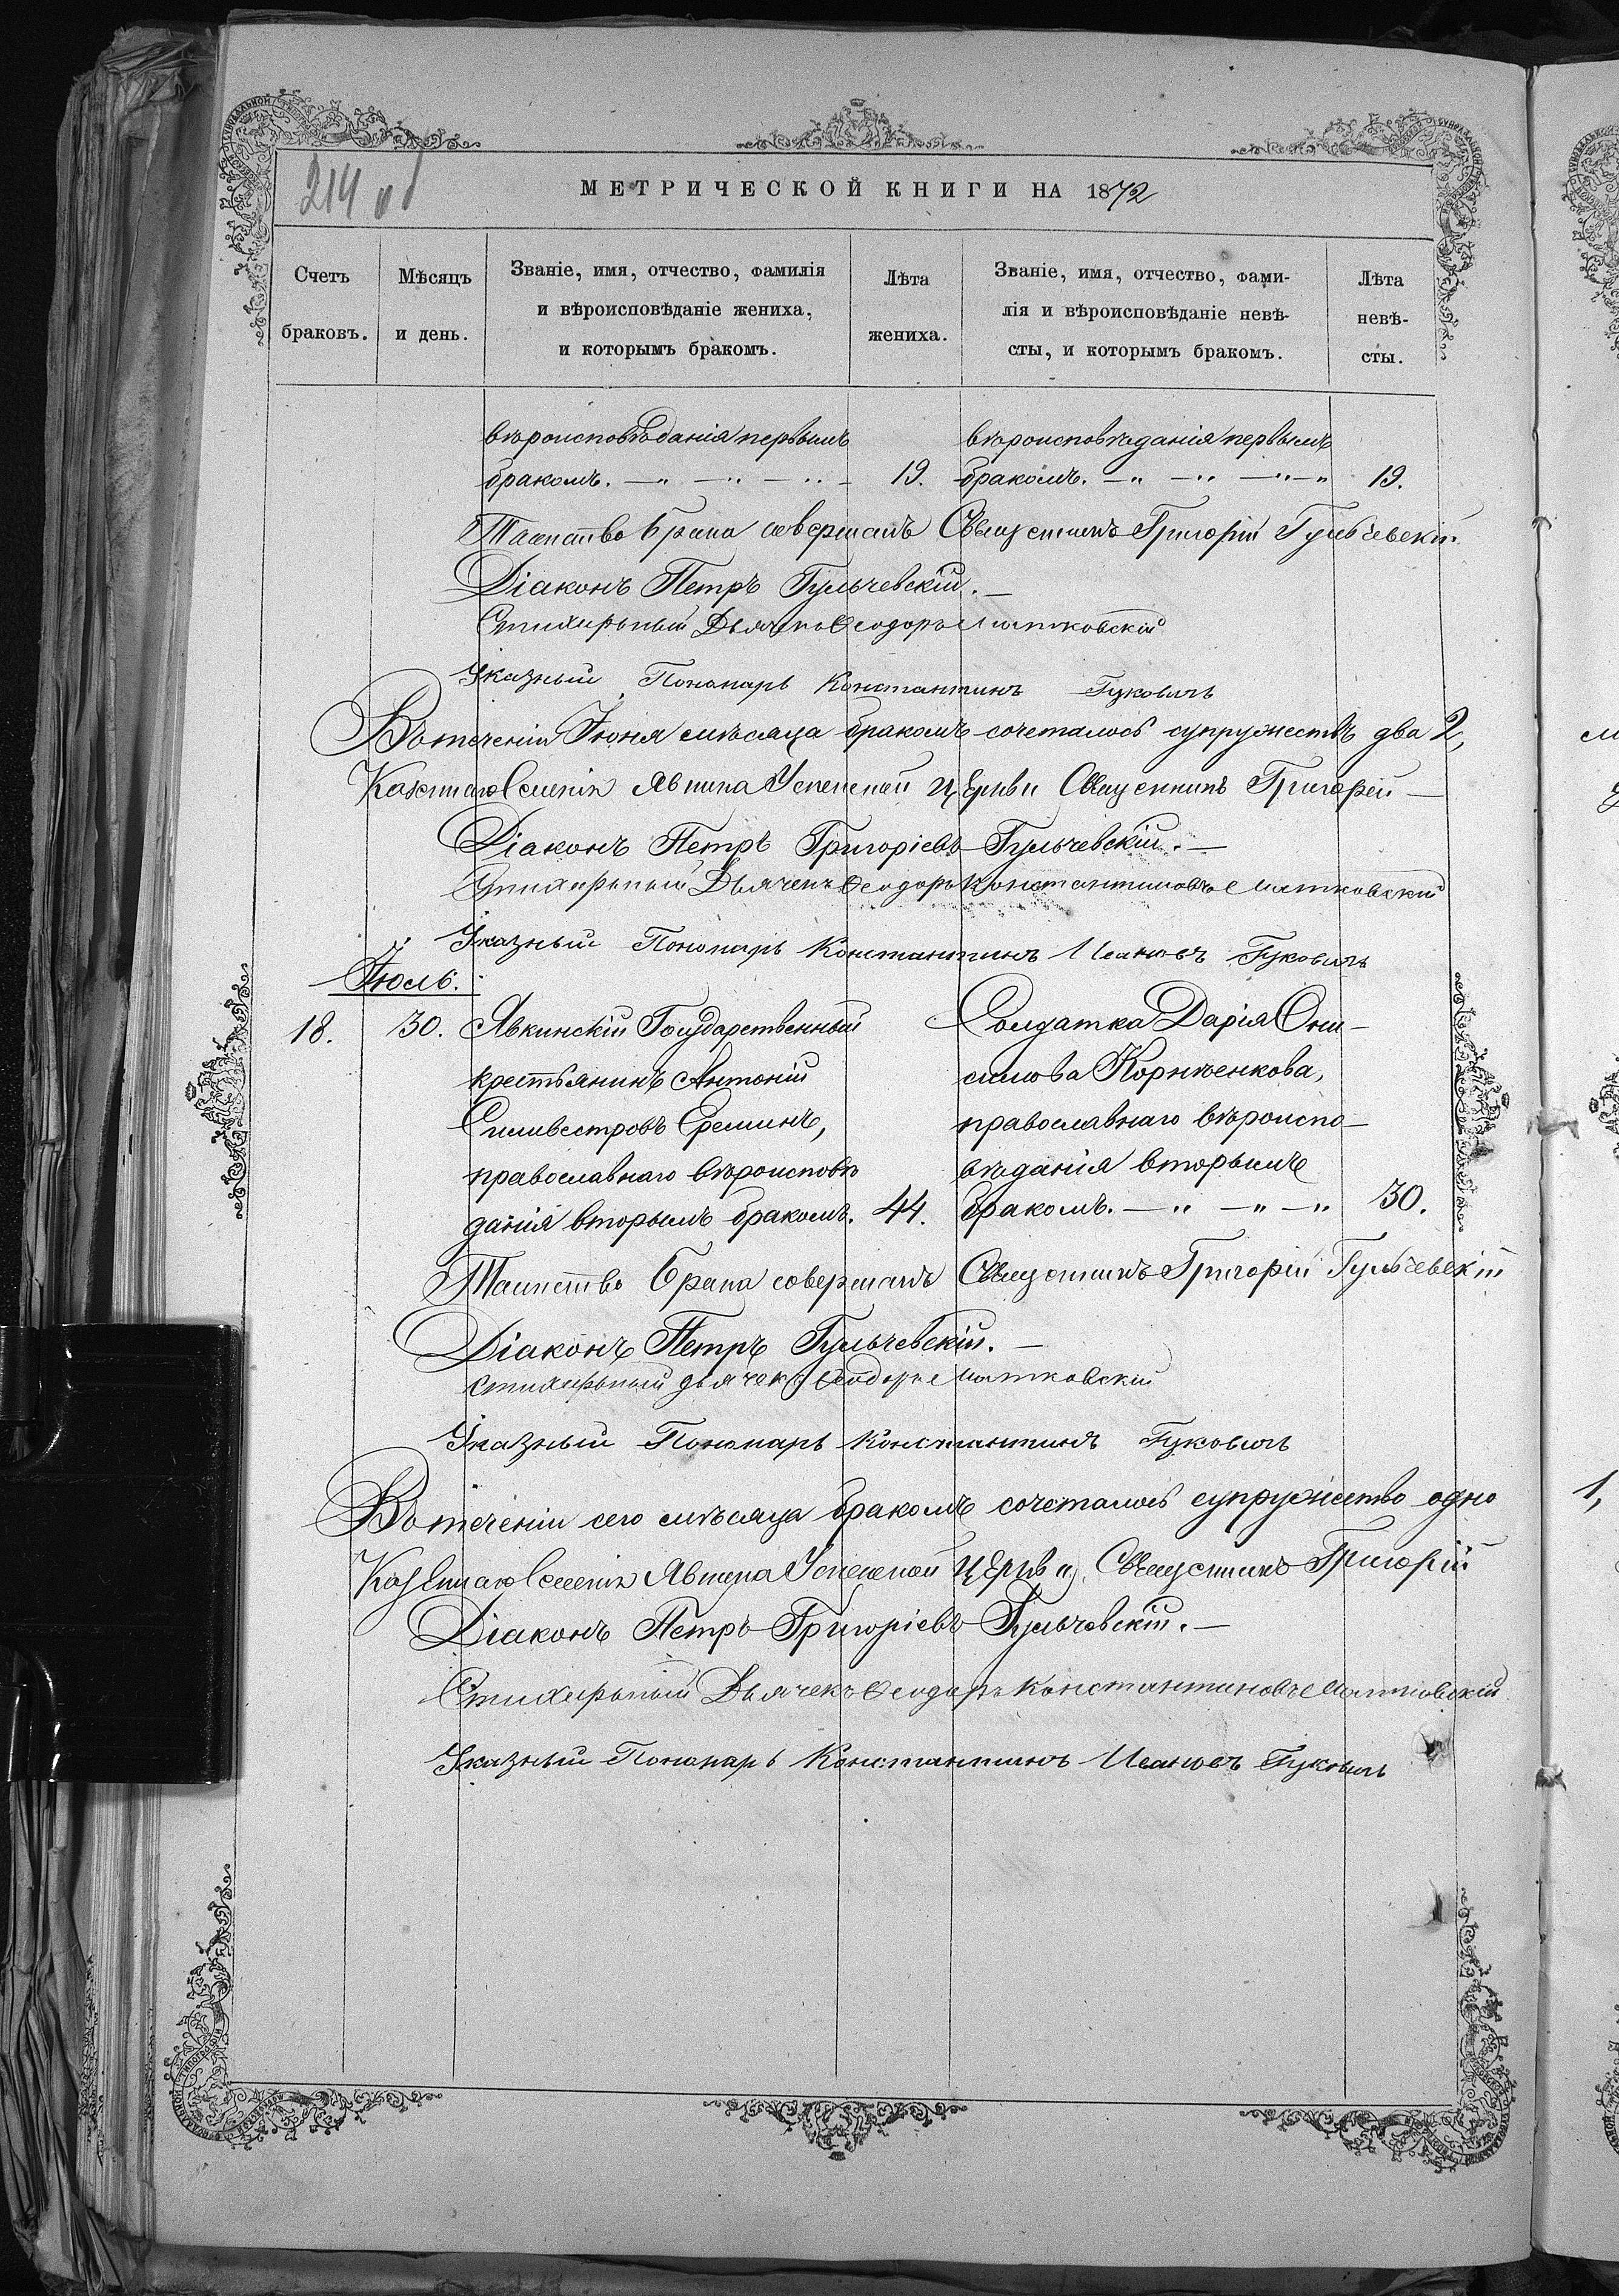 214 об
МЕТРИЧЕСКОЙ КНИГИ НА 1872
Счетъ браковъ.
Мѣсяцъ и день.
Званіе, имя, отчество, фамилія
и вѣроисповѣданіе жениха,
и которымъ бракомъ.
Лѣта жениха.
Званіе, имя, отчество, фами-
лія и вѣроисповѣданіе невѣ-
сты, и которымъ бракомъ.
Лѣта невѣ-
сты.
вѣроисповѣданія первымъ
бракомъ. 19.
вѣроисповѣданія первымъ
бракомъ. 19.
Таинство брака совершалъ Священникъ Григорій Гульчевскій.
Діаконъ Петръ Гульчевскій.
Стихарный Дьячекъ Ѳеодоръ Мятковскій
Указный Пономарь Константинъ Гуковичъ
Въ теченіи Іюня мѣсяца бракомъ сочеталось супружествъ два 2,
Явкина Успенской Церкви Священникъ Григорій
Діаконъ Петръ Григоріевъ Гульчевскій.
Стихарный Дьячекъ Ѳеодоръ Константиновъ Мятковскій
Указный Пономарь Константинъ Ивановъ Гуковичъ
Іюль.
18. 30. Явкинскій Государственный
крестьянинъ Антоній
Силивестровъ Ереминъ,
православнаго вѣроисповѣ
данія вторымъ бракомъ. 44.
Солдатка Дарія Они-
симова Корнѣенкова,
православнаго вѣроиспо-
вѣданія вторымъ
бракомъ. 30.
Таинство брака совершалъ Священникъ Григорій Гульчевскій
Діаконъ Петръ Гульчевскій.
Стихарный дьячекъ Ѳеодоръ Мятковскій
Указный Пономарь Константинъ Гуковичъ
Въ теченіи сего мѣсяца бракомъ сочеталось супружество одно 1,
Явкина Успенской Церкви, Священникъ Григорій
Діаконъ Петръ Григоріевъ Гульчевскій.
Стихарный Дьячекъ Ѳеодоръ Константиновъ Мятковскій
Указный Пономарь Константинъ Ивановъ Гуковичъ